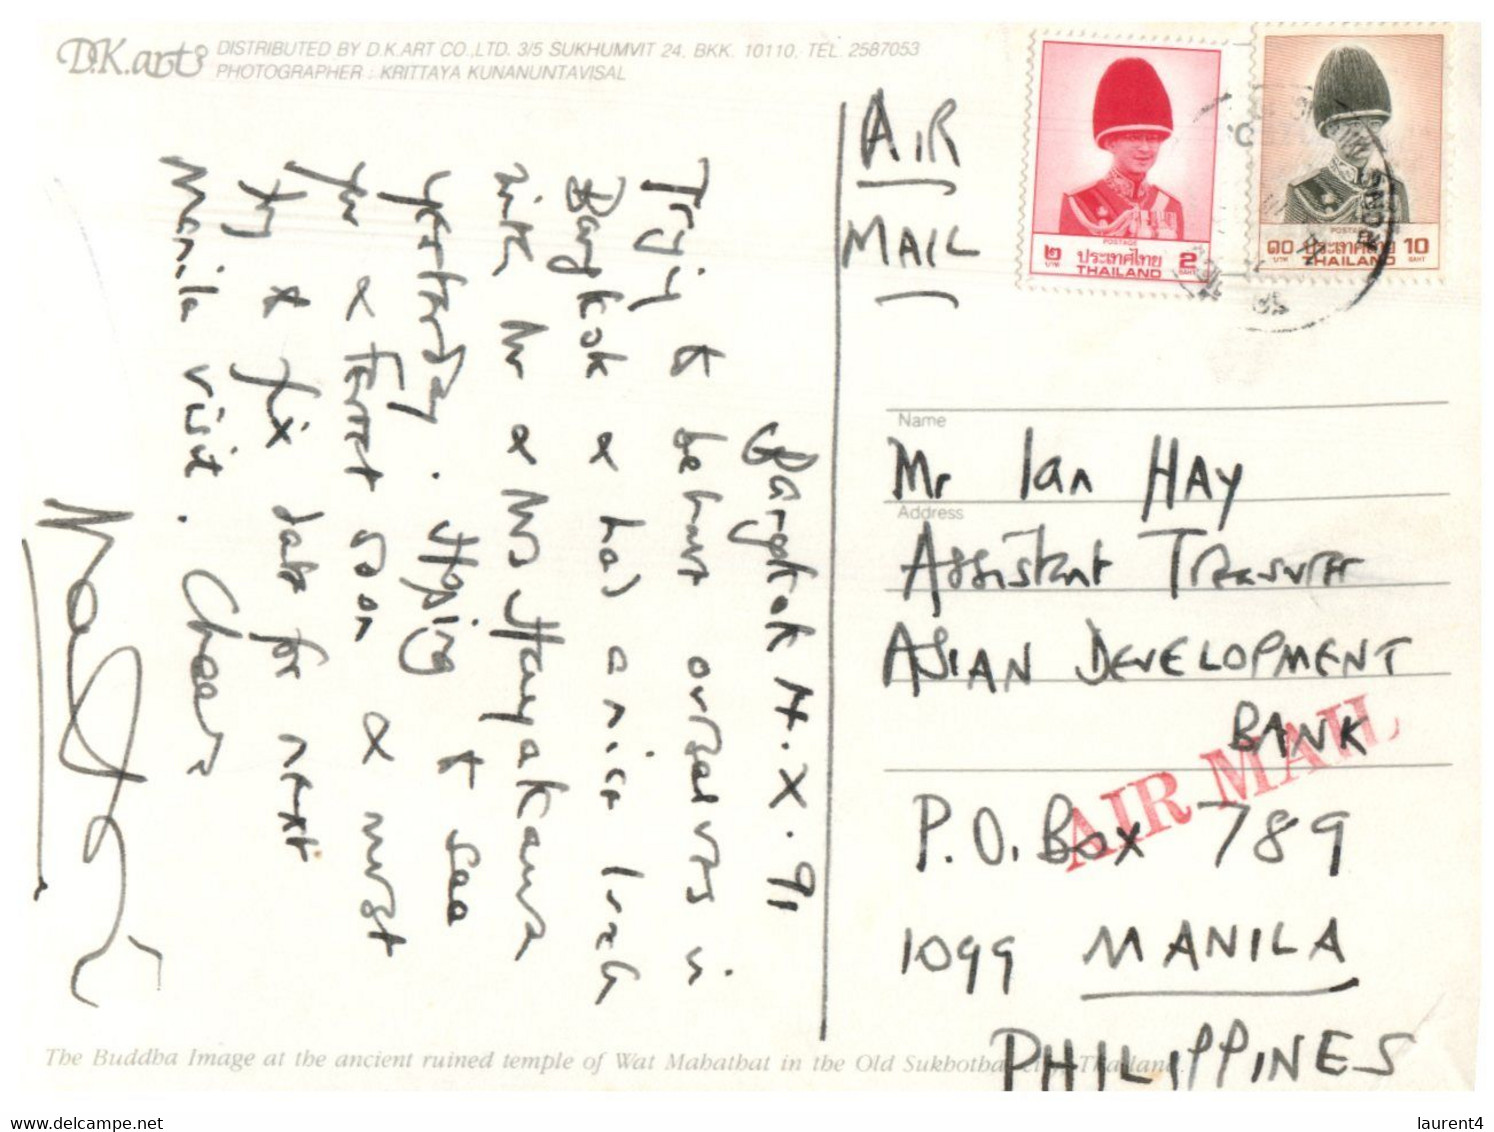 D.K.arts
DISTRIBUTED BY D.K.ART CO.,LTD. 3/5 SUKHUMVIT 24. BKK. 10110. TEL. 2587053
PHOTOGRAPHER : KRITTAYA KUNANUNTAVISAL
AIR
MAIL
POSTAGE
๒ ประเทศไทย 2
บาท THAILAND BAHT
POSTAGE
๑๐ ประเทศไทย 10
บาท THAILAND BAHT
Bangkok 14.X.91
Trying to behave ourselves in
Bangkok & had a nice lunch
with Mr & Mrs Hayakawa
yesterday. Hoping to see
you & soon & must
try & fix date for next
Manila visit. Cheers
Name
Mr Ian HAY
Address
Assistant Treasurer
ASIAN DEVELOPMENT
BANK
AIR MAIL
P.O. Box 789
1099 MANILA
PHILIPPINES
The Buddha Image at the ancient ruined temple of Wat Mahathat in the Old Sukhothai city, Thailand.
www.delcampe.net
laurent4